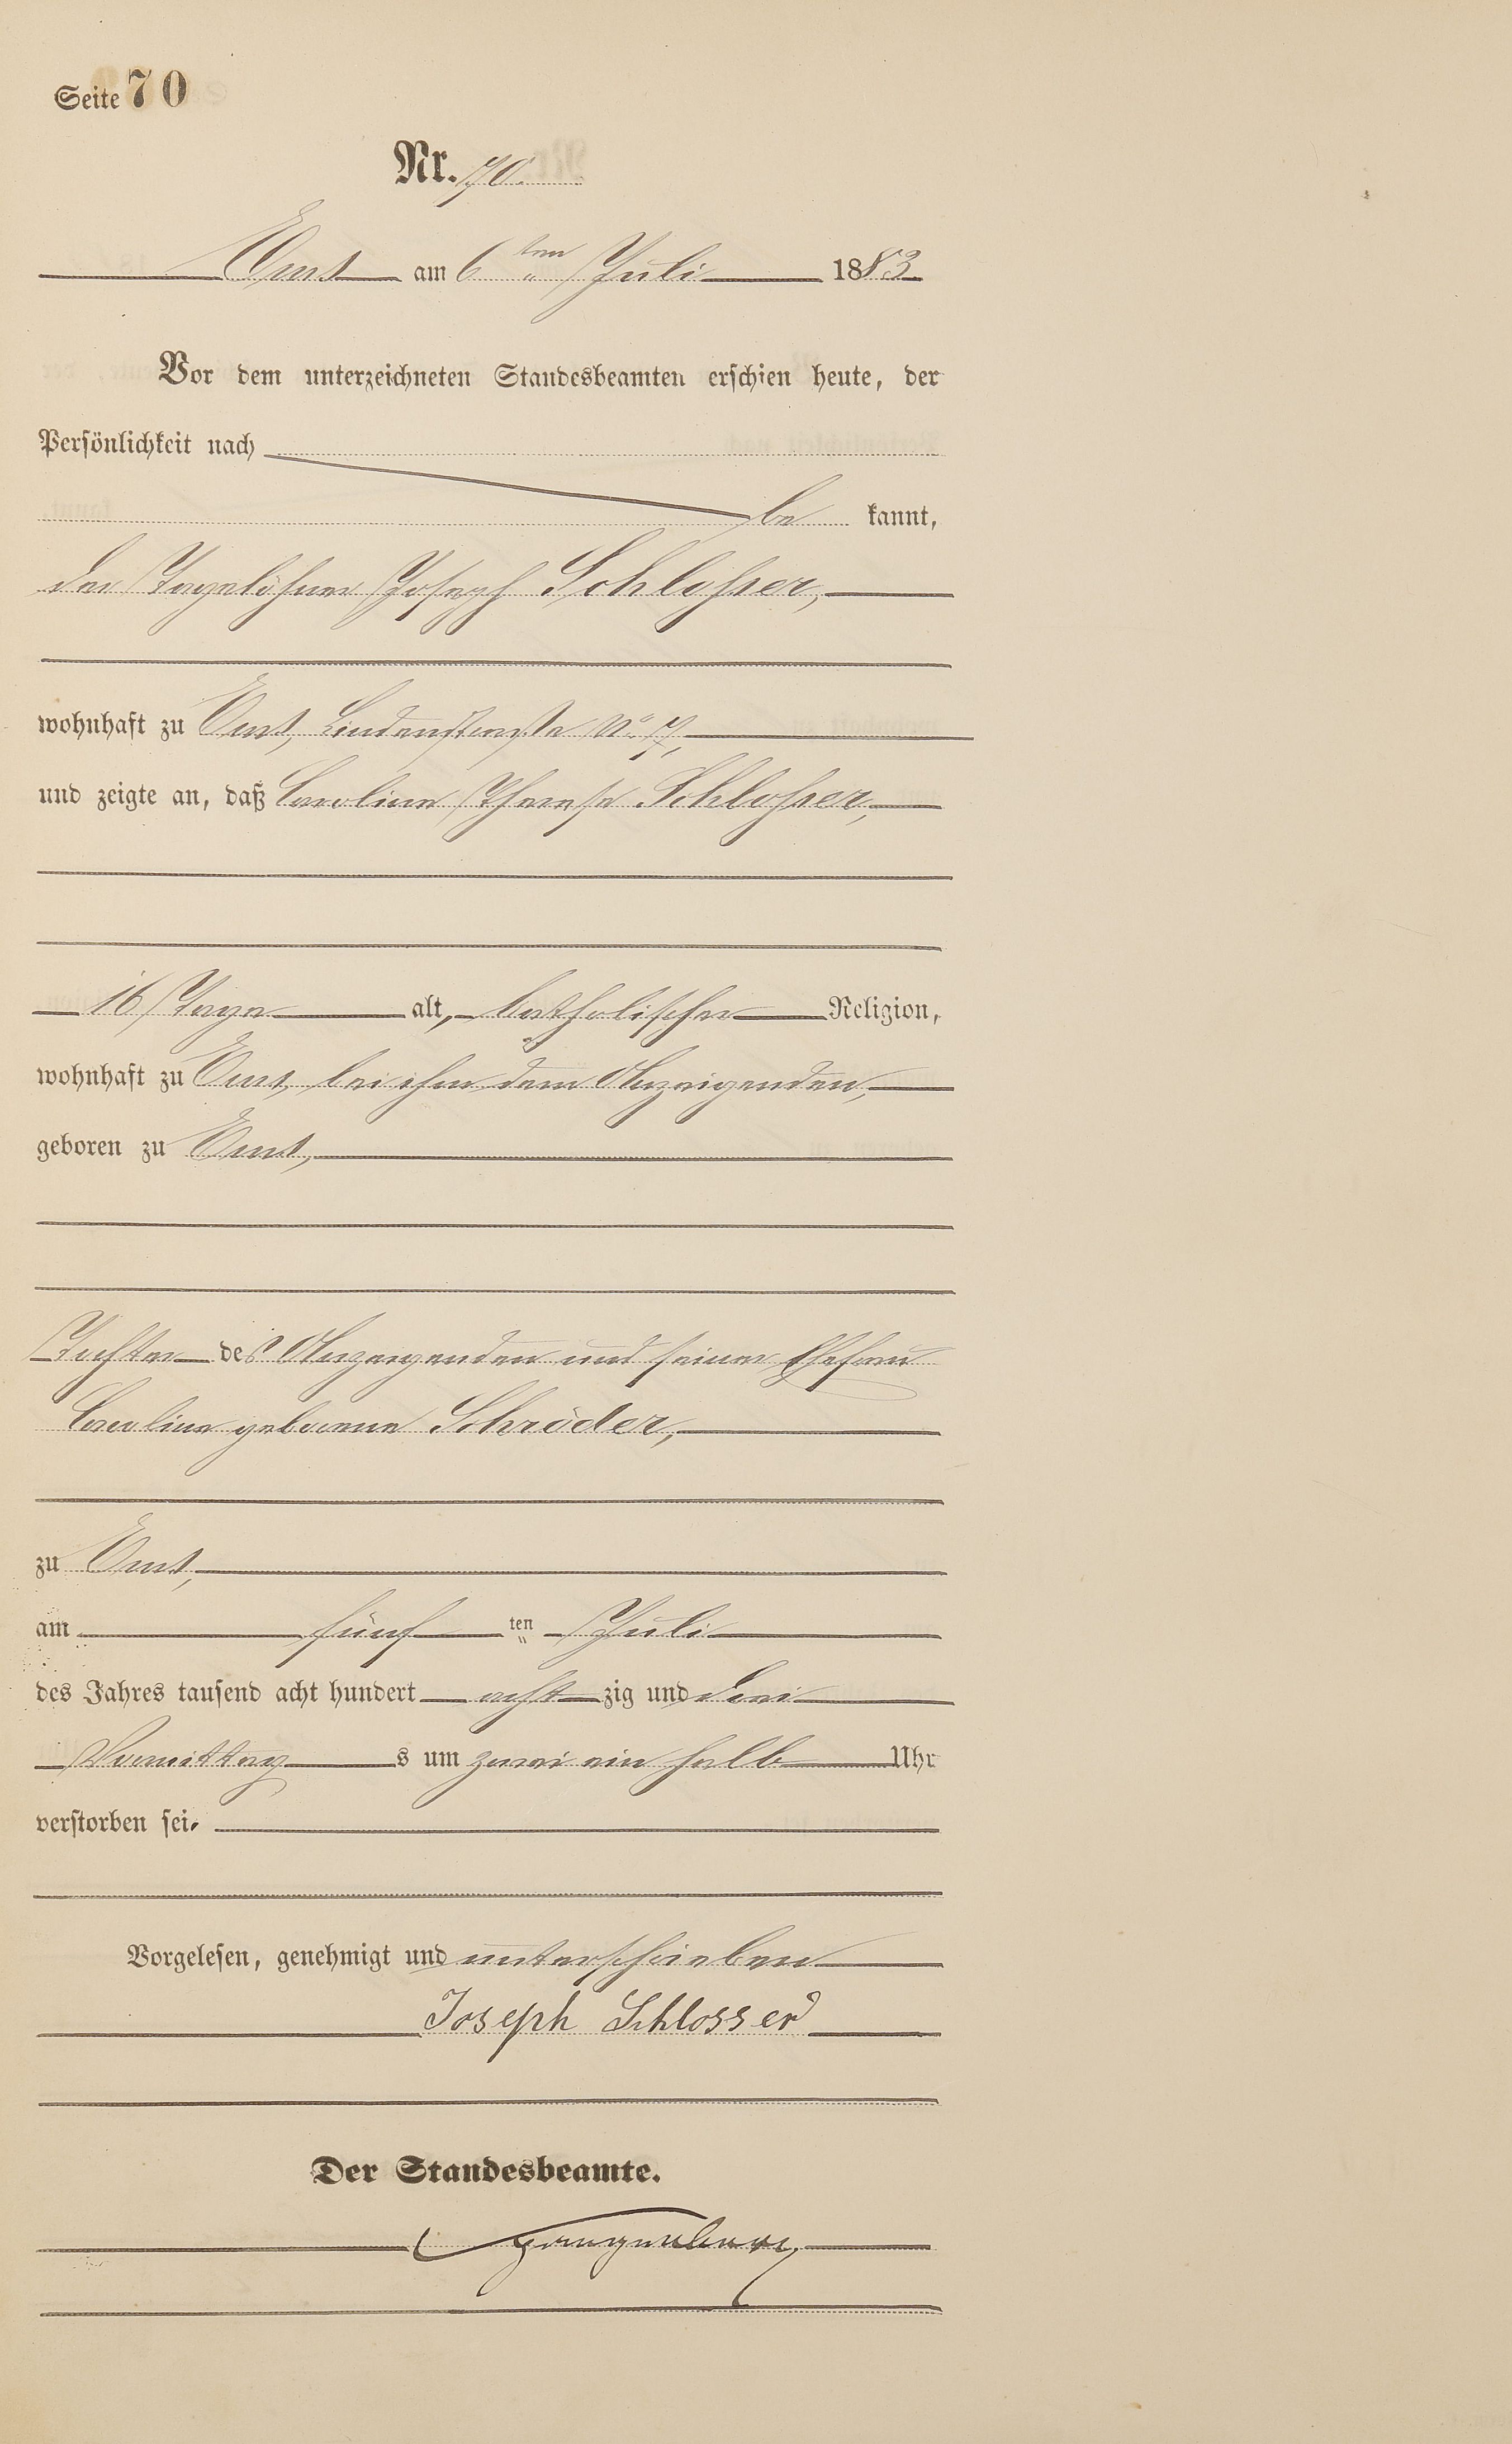 Seite 70
Nr. 70.
Ems am 6ten Juli 1883
Vor dem unterzeichneten Standesbeamten erschien heute, der
Persönlichkeit nach
be kannt,
der Tagelöhner Joseph Schlosser,
wohnhaft zu Ems, Lindenstraße No. 7,
und zeigte an, daß Caroline Therese Schlosser,
16 Tage alt, katholischer Religion,
wohnhaft zu Ems, bei ihm dem Anzeigenden,
geboren zu Ems,
Tochter des Anzeigenden und seiner Ehefrau
Caroline geborene Schröder,
zu Ems,
am fünf ten Juli
des Jahres tausend acht hundert acht zig und drei
Vormittag s um zwei ein halb Uhr
verstorben sei.
Vorgelesen, genehmigt und unterschrieben
Joseph Schlosser
Der Standesbeamte.